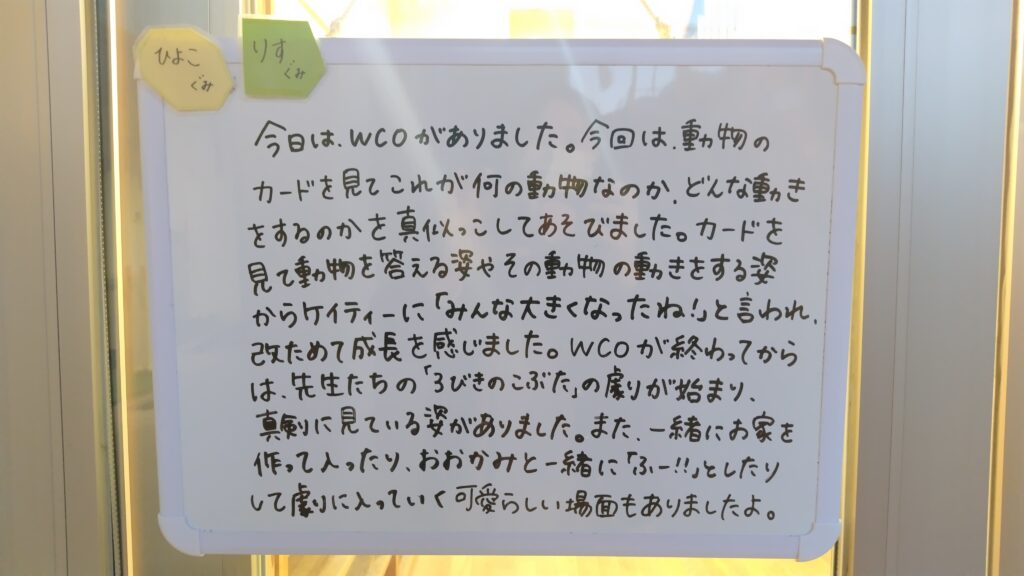 ひよこ
ぐみ
りす
ぐみ
今日は、WCOがありました。今回は、動物の
カードを見てこれが何の動物なのか、どんな動き
をするのかを真似っこしてあそびました。カードを
見て動物を答える姿やその動物の動きをする姿
からケイティーに「みんな大きくなったね!」と言われ、
改ためて成長を感じました。WCOが終わってから
は、先生たちの「3びきのこぶた」の劇が始まり、
真剣に見ている姿がありました。また、一緒にお家を
作って入ったり、おおかみと一緒に「ふー!!」としたり
して劇に入っていく可愛らしい場面もありましたよ。